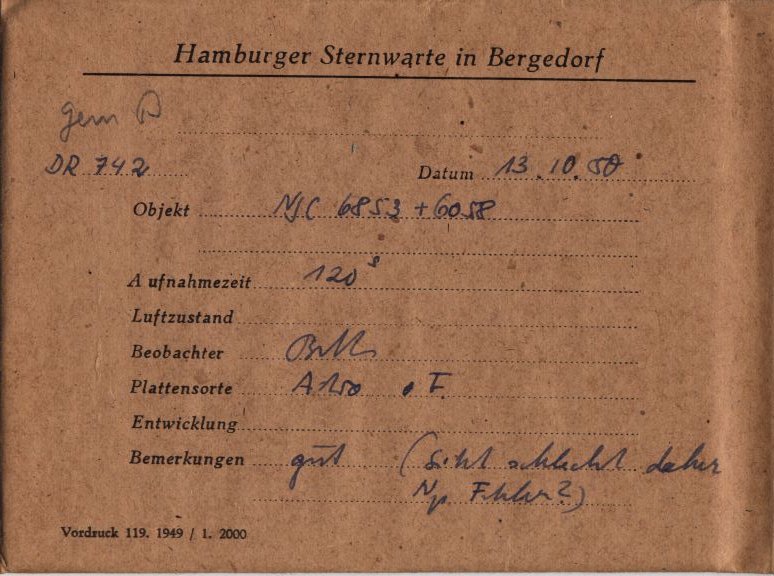 Hamburger Sternwarte in Bergedorf
gem
DR 742
Datum 13.10.50
Objekt NGC 6853 + 6058
Aufnahmezeit 120 s
Luftzustand
Beobachter
Plattensorte
Entwicklung
Bemerkungen gut (Sicht schlecht daher
Fehler?)
Vordruck 119. 1949 / 1. 2000